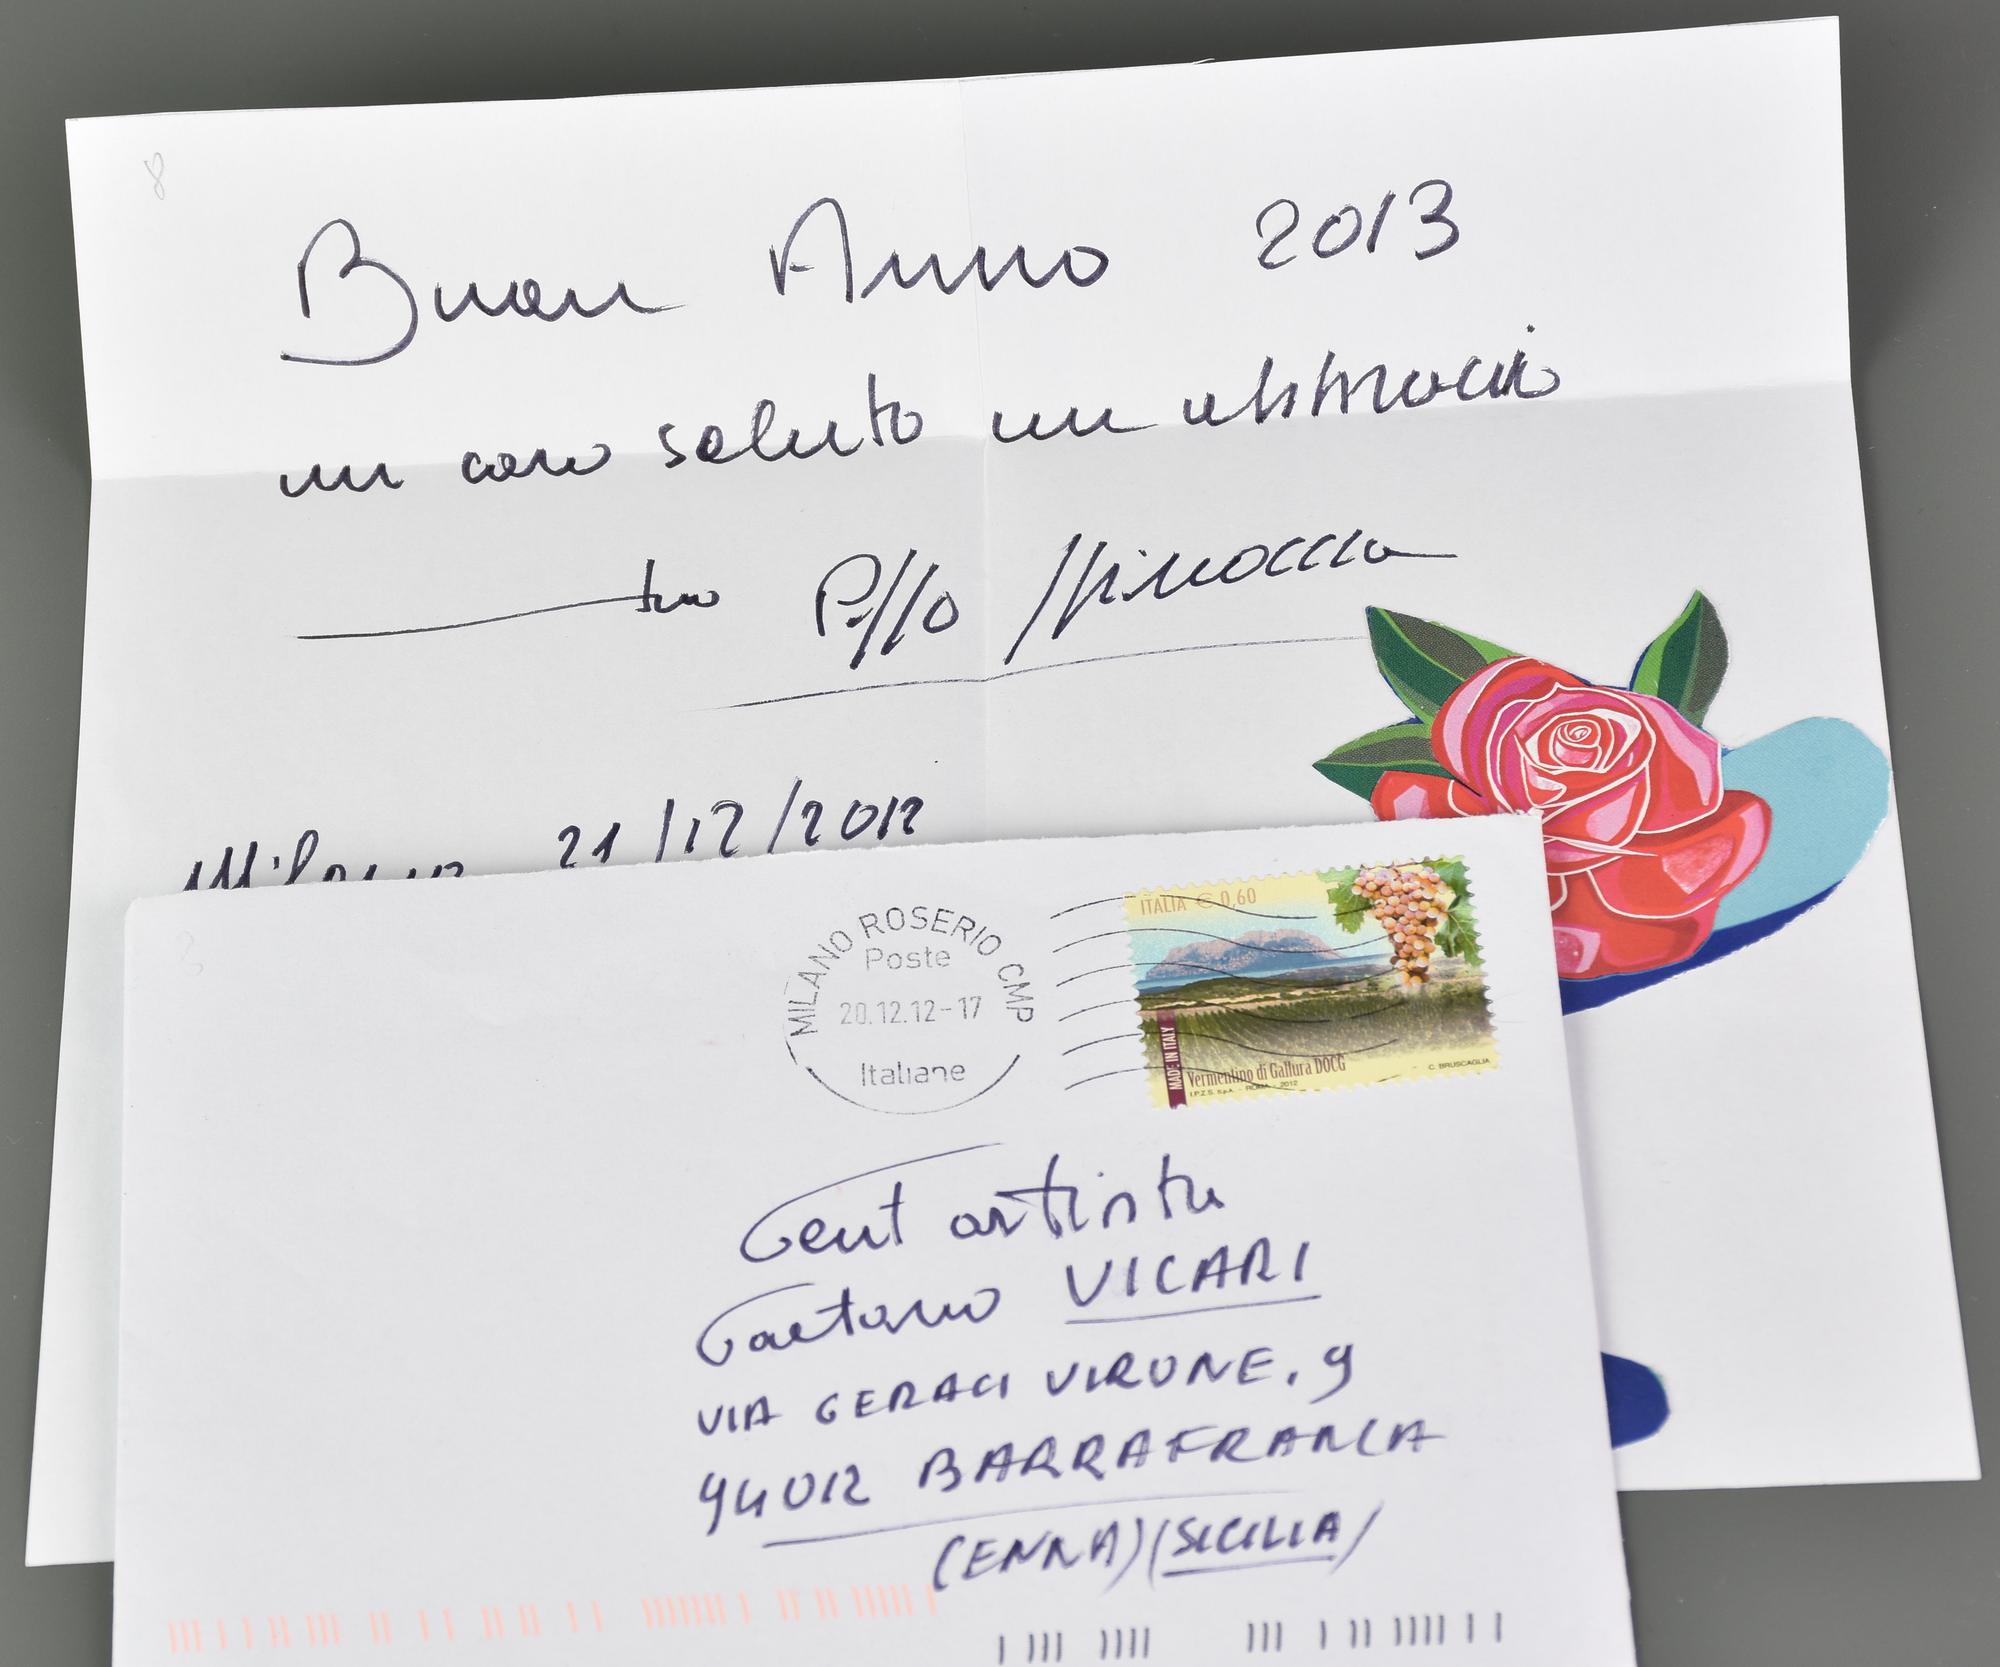 8
Buon Anno 2013
un caro saluto un abbraccio
tuo Peppo Spinoccia
Milano 21/12/2012
MILANO ROSERIO CMP
Poste
20.12.12-17
Italiane
ITALIA € 0,60
MADE IN ITALY
Vermentino di Gallura DOCG
I.P.Z.S. S.p.A. - ROMA - 2012
C. BRUSCAGLIA
Gent artista
Gaetano VICARI
VIA GERACI VIRONE, 9
94012 BARRAFRANCA
(ENNA) (SICILIA)